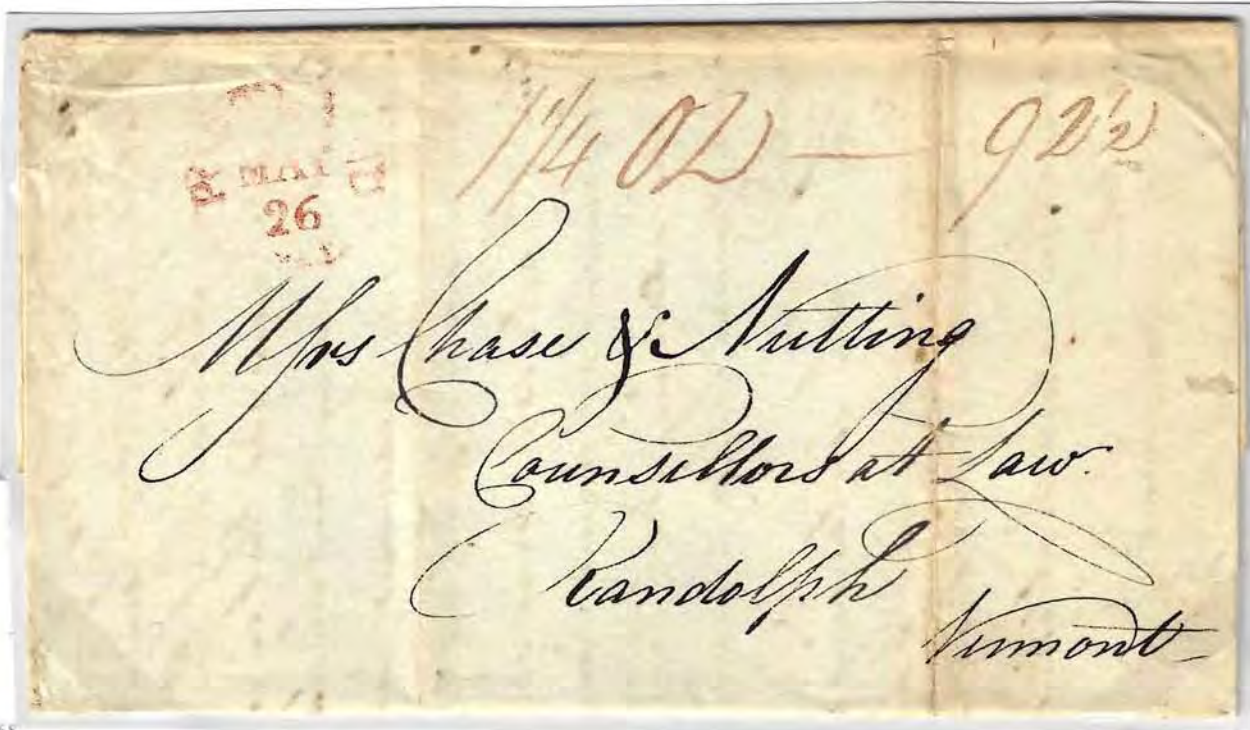 1 1/4 OZ — 92 1/2
MAY
26
Msrs Chase & Nutting
Counsellors at Law.
Randolph
Vermont